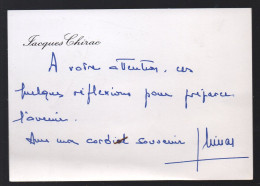 Jacques Chirac
A votre attention, ces
quelques réflexions pour préparer
l'avenir.
Avec mon cordial souvenir